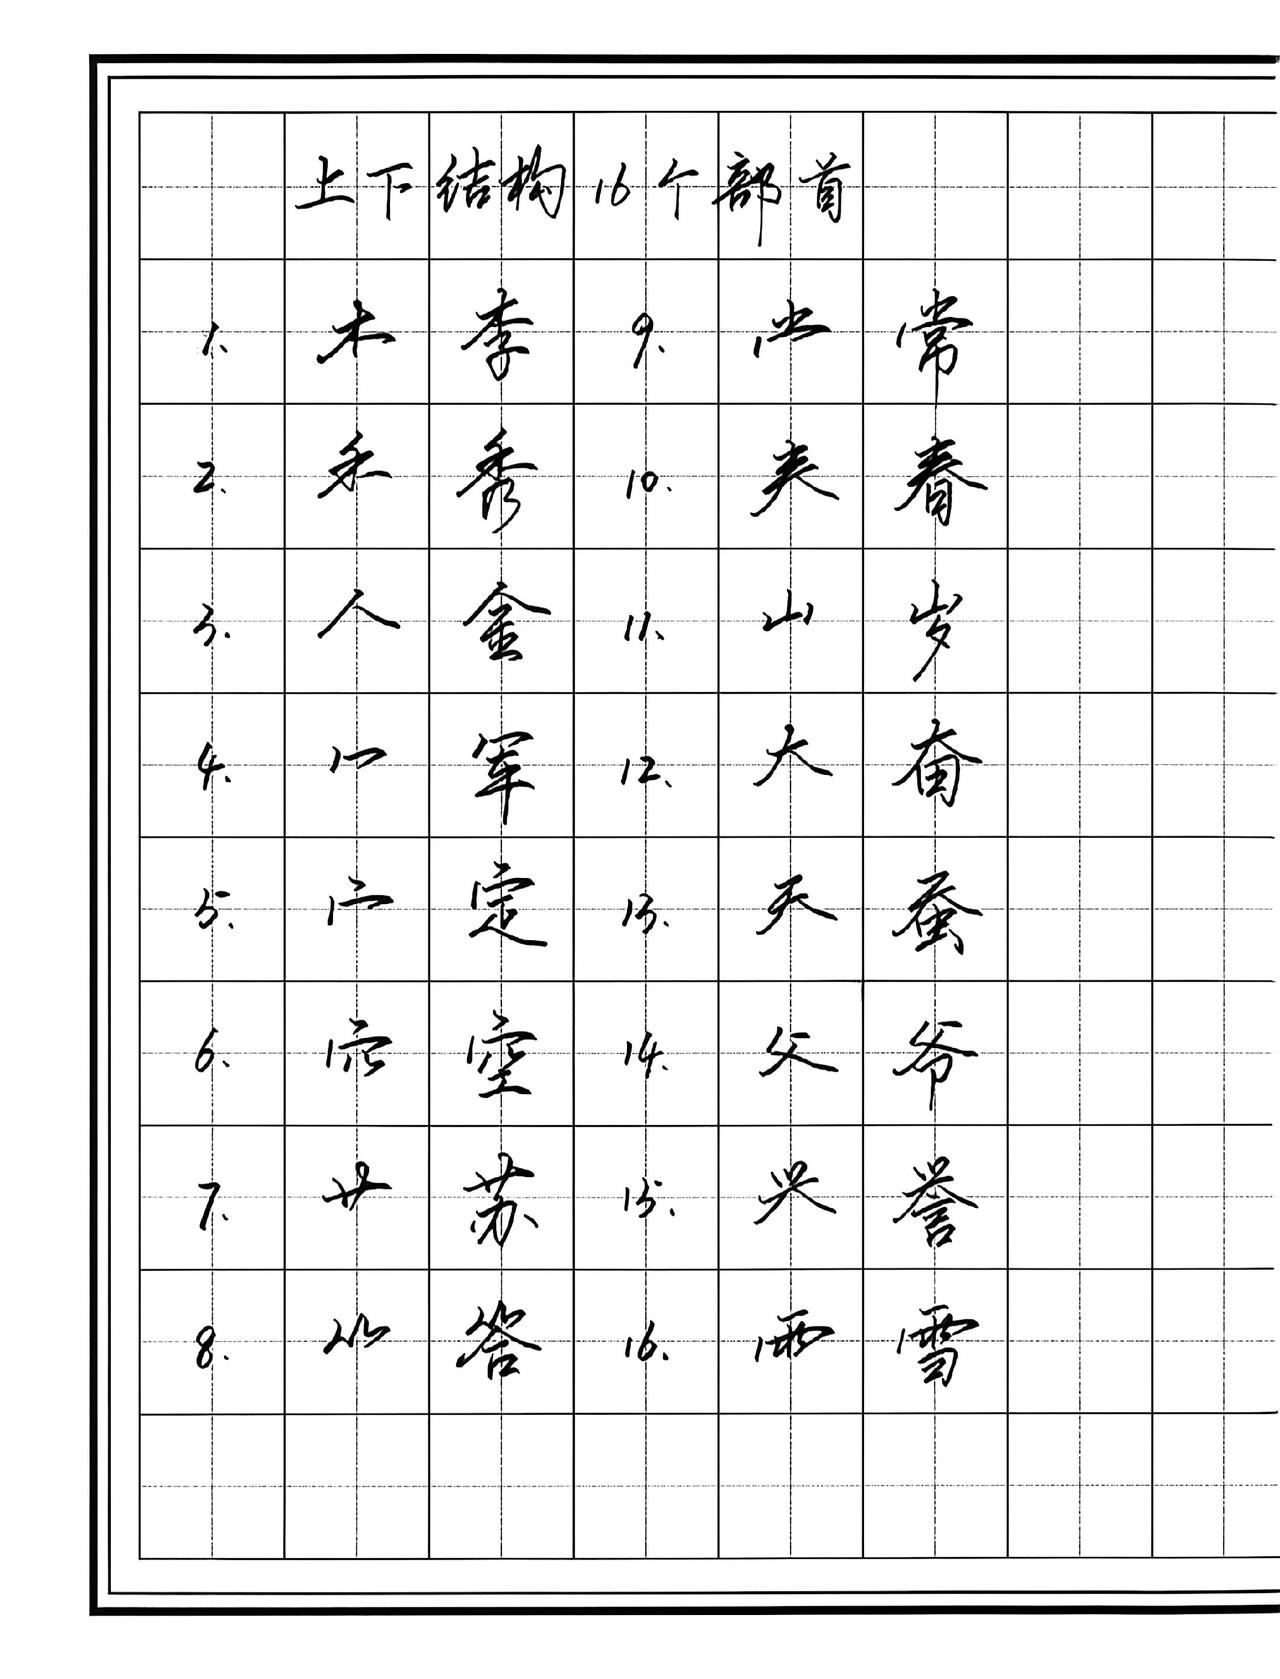 上下结构16个部首
1. 木 李 9. 龸 常
2. 禾 秀 10. 𡗗 春
3. 人 金 11. 山 岁
4. 冖 军 12. 大 奋
5. 宀 定 13. 天 蚕
6. 穴 空 14. 父 爷
7. 艹 苏 15. 𭕄 誉
8. 𥫗 答 16. 雨 雪